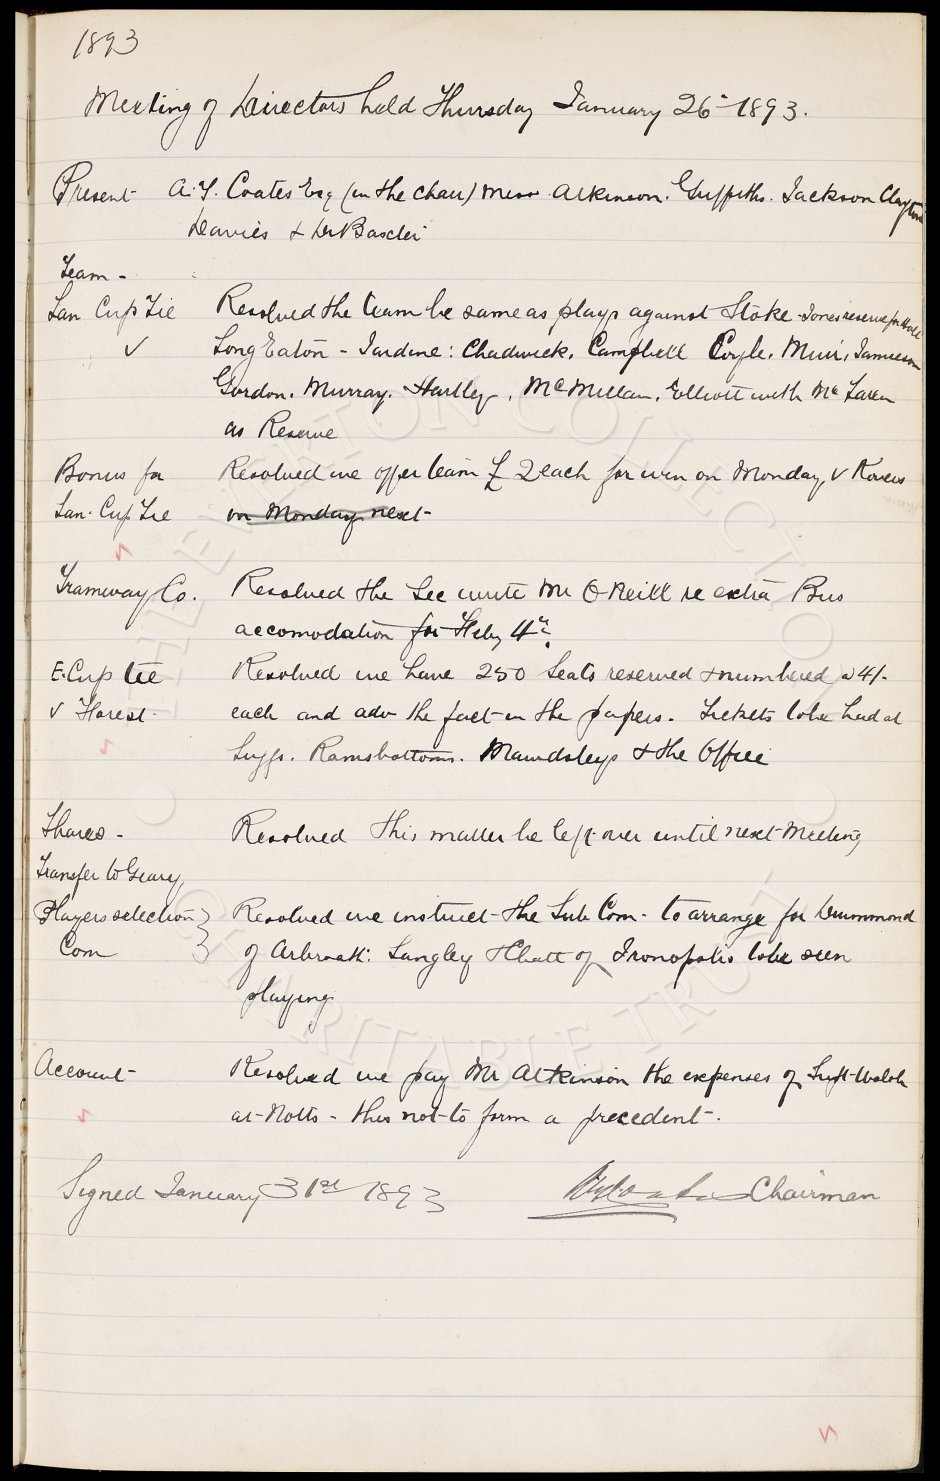 1893
Meeting of Directors held Thursday January 26th 1893.
Present A.T. Coates Esq (in the chair) Messrs Atkinson. Griffiths. Jackson Clayton
Davies & Dr Baxter
Team -
Lan Cup Tie Resolved the team be same as plays against Stoke - Jones reserve for Holt
Long Eaton - Jardine: Chadwick. Campbell Coyle. Muir. Jamieson
Gordon. Murray. Hartley. McMillan. Elliott with McLaren
as Reserve
Bonus for Resolved we offer team £2 each for win on Monday, v Rovers
Lan. Cup Tie on Monday next
Tramway Co. Resolved the Sec write Mr O Reill re extra Bus
accomodation for Feby 4th.
E. Cup tie Resolved we have 250 Seats reserved & numbered @ 4/-
v Forest. each and adv the fact in the papers. Tickets to be had at
Suggs. Ramsbottoms. Mawdsleys & the Office
Shares - Resolved this matter be left over until next Meeting
Transfer to Geary,
Players selection Resolved we instruct the Sub Com - to arrange for Drummond
Com of Arbroath: Langley & Chatt of Ironopolis to be seen
playing.
Account Resolved we pay Mr Atkinson the expenses of Welsh
at Notts - this not to form a precedent.
Signed January 31st 1893 Chairman
THE EVERTON COLLECTION
CHARITABLE TRUST